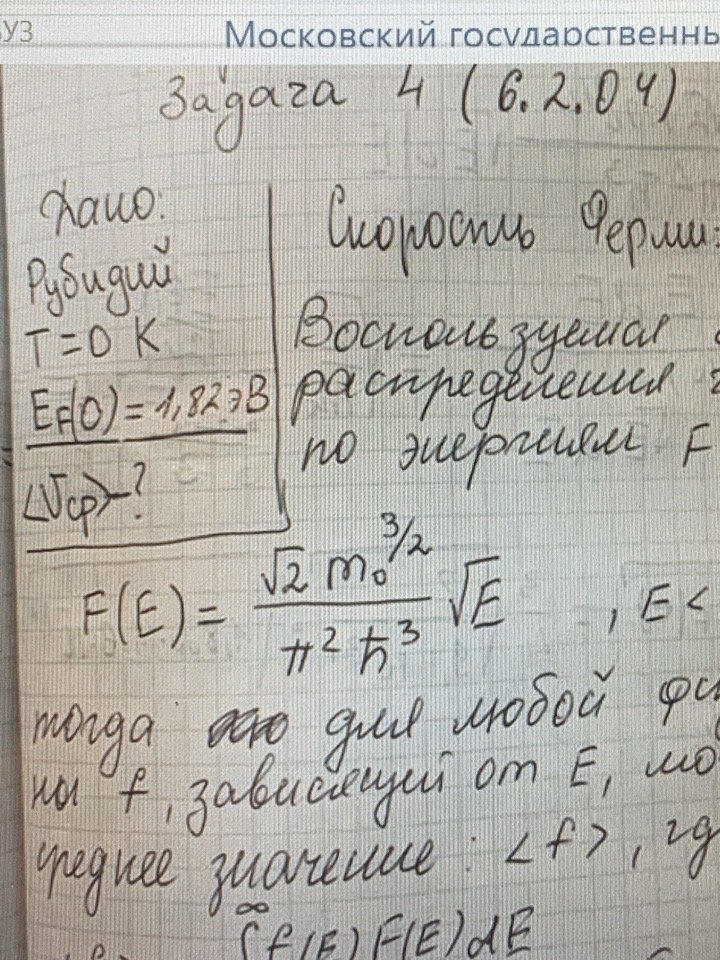 УЗ
Московский государственнь
Задача 4 (6.2.04)
Дано:
Рубидий
T=0 K
E_F(0)=1,82 эВ
<V_ср>-?
Скорость Ферми:
Воспользуемся
распределения
по энергиям F
F(E) = √2 m₀^{3/2} / π² ħ³ √E , E <
тогда для любой фи
ны f, зависящей от E, мо
среднее значение: <f>, гд
∞
∫ f(E) F(E) dE